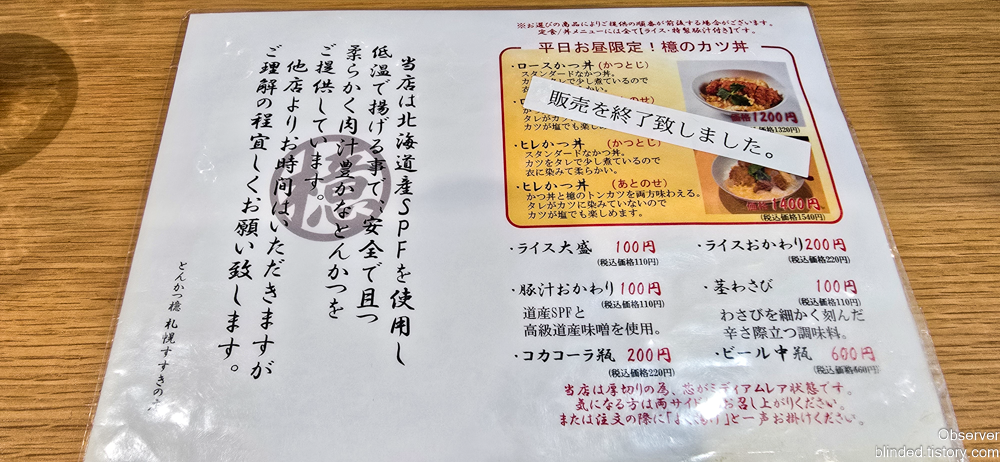 当店は北海道産SPFを使用し
低温で揚げる事で、安全で且つ
柔らかく肉汁豊かなとんかつを
ご提供しています。
他店よりお時間はいただきますが
ご理解の程宜しくお願い致します。
檍
とんかつ檍 札幌すすきの
※お選びの商品によりご提供の順番が前後する場合がございます。
定食/丼メニューには全て【ライス・特製豚汁付き】です。
平日お昼限定!檍のカツ丼
・ロースかつ丼 (かつとじ)
スタンダードなかつ丼。
カツをタレで少し煮ているので
衣
価格1200円
(税込価格1320円)
販売を終了致しました。
タレがカツ
カツが塩でも楽し
・ヒレかつ丼 (かつとじ)
スタンダードなかつ丼。
カツをタレで少し煮ているので
衣に染みて柔らかい。
・ヒレかつ丼 (あとのせ)
かつ丼と檍のトンカツを両方味わえる。
タレがカツに染みていないので
カツが塩でも楽しめます。
価格1400円
(税込価格1540円)
・ライス大盛 100円
(税込価格110円)
・ライスおかわり200円
(税込価格220円)
・豚汁おかわり100円
(税込価格110円)
道産SPFと
高級道産味噌を使用。
・茎わさび 100円
(税込価格110円)
わさびを細かく刻んだ
辛さ際立つ調味料。
・コカコーラ瓶 200円
(税込価格220円)
・ビール中瓶 600円
(税込価格660円)
当店は厚切りの為、芯がミディアムレア状態です。
気になる方は両サイド お召し上がりください。
または注文の際に「よく揚げ」と一声お掛けください。
Observer
blinded.tistory.com